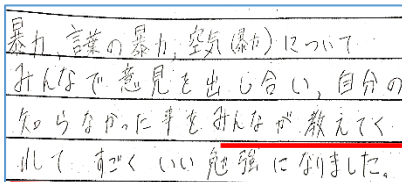 暴力、言葉の暴力、空気(暴力)について
みんなで意見を出し合い、自分の
知らなかった事をみんなが教えてく
れて すごくいい勉強になりました。